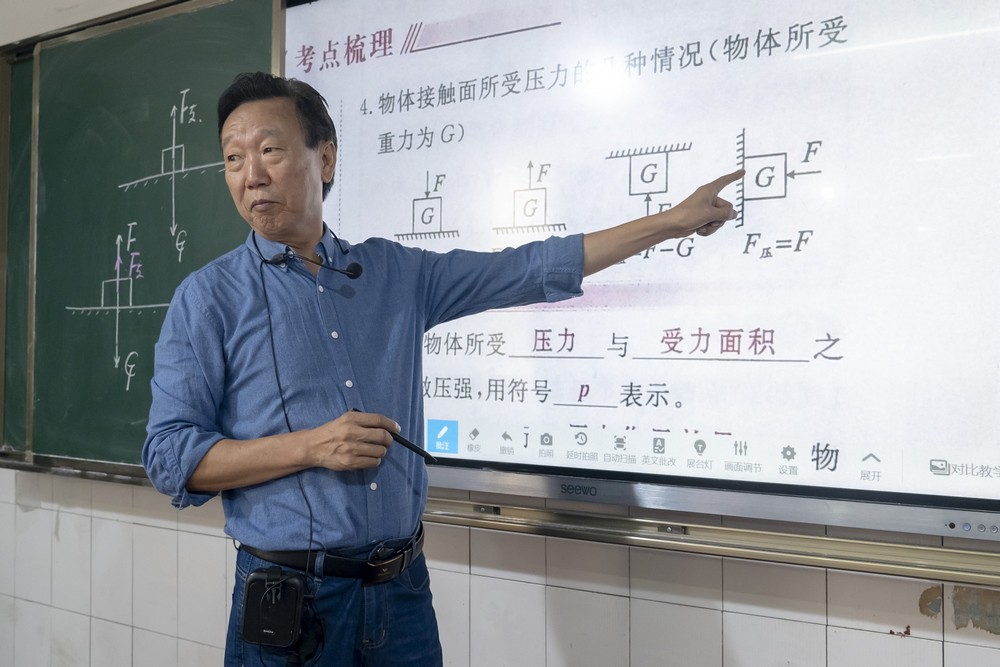 F支.
G
F
F支
G
考点梳理
4. 物体接触面所受压力的 种情况(物体所受
重力为 G)
F
G
F
G
G
F
G
F
F-G
F压=F
物体所受 压力 与 受力面积 之
压强,用符号 p 表示。
批注 橡皮 撤销 拍照 延时拍照 自动扫描 英文批改 展台灯 画面调节 设置 物 展开 对比教学
seewo